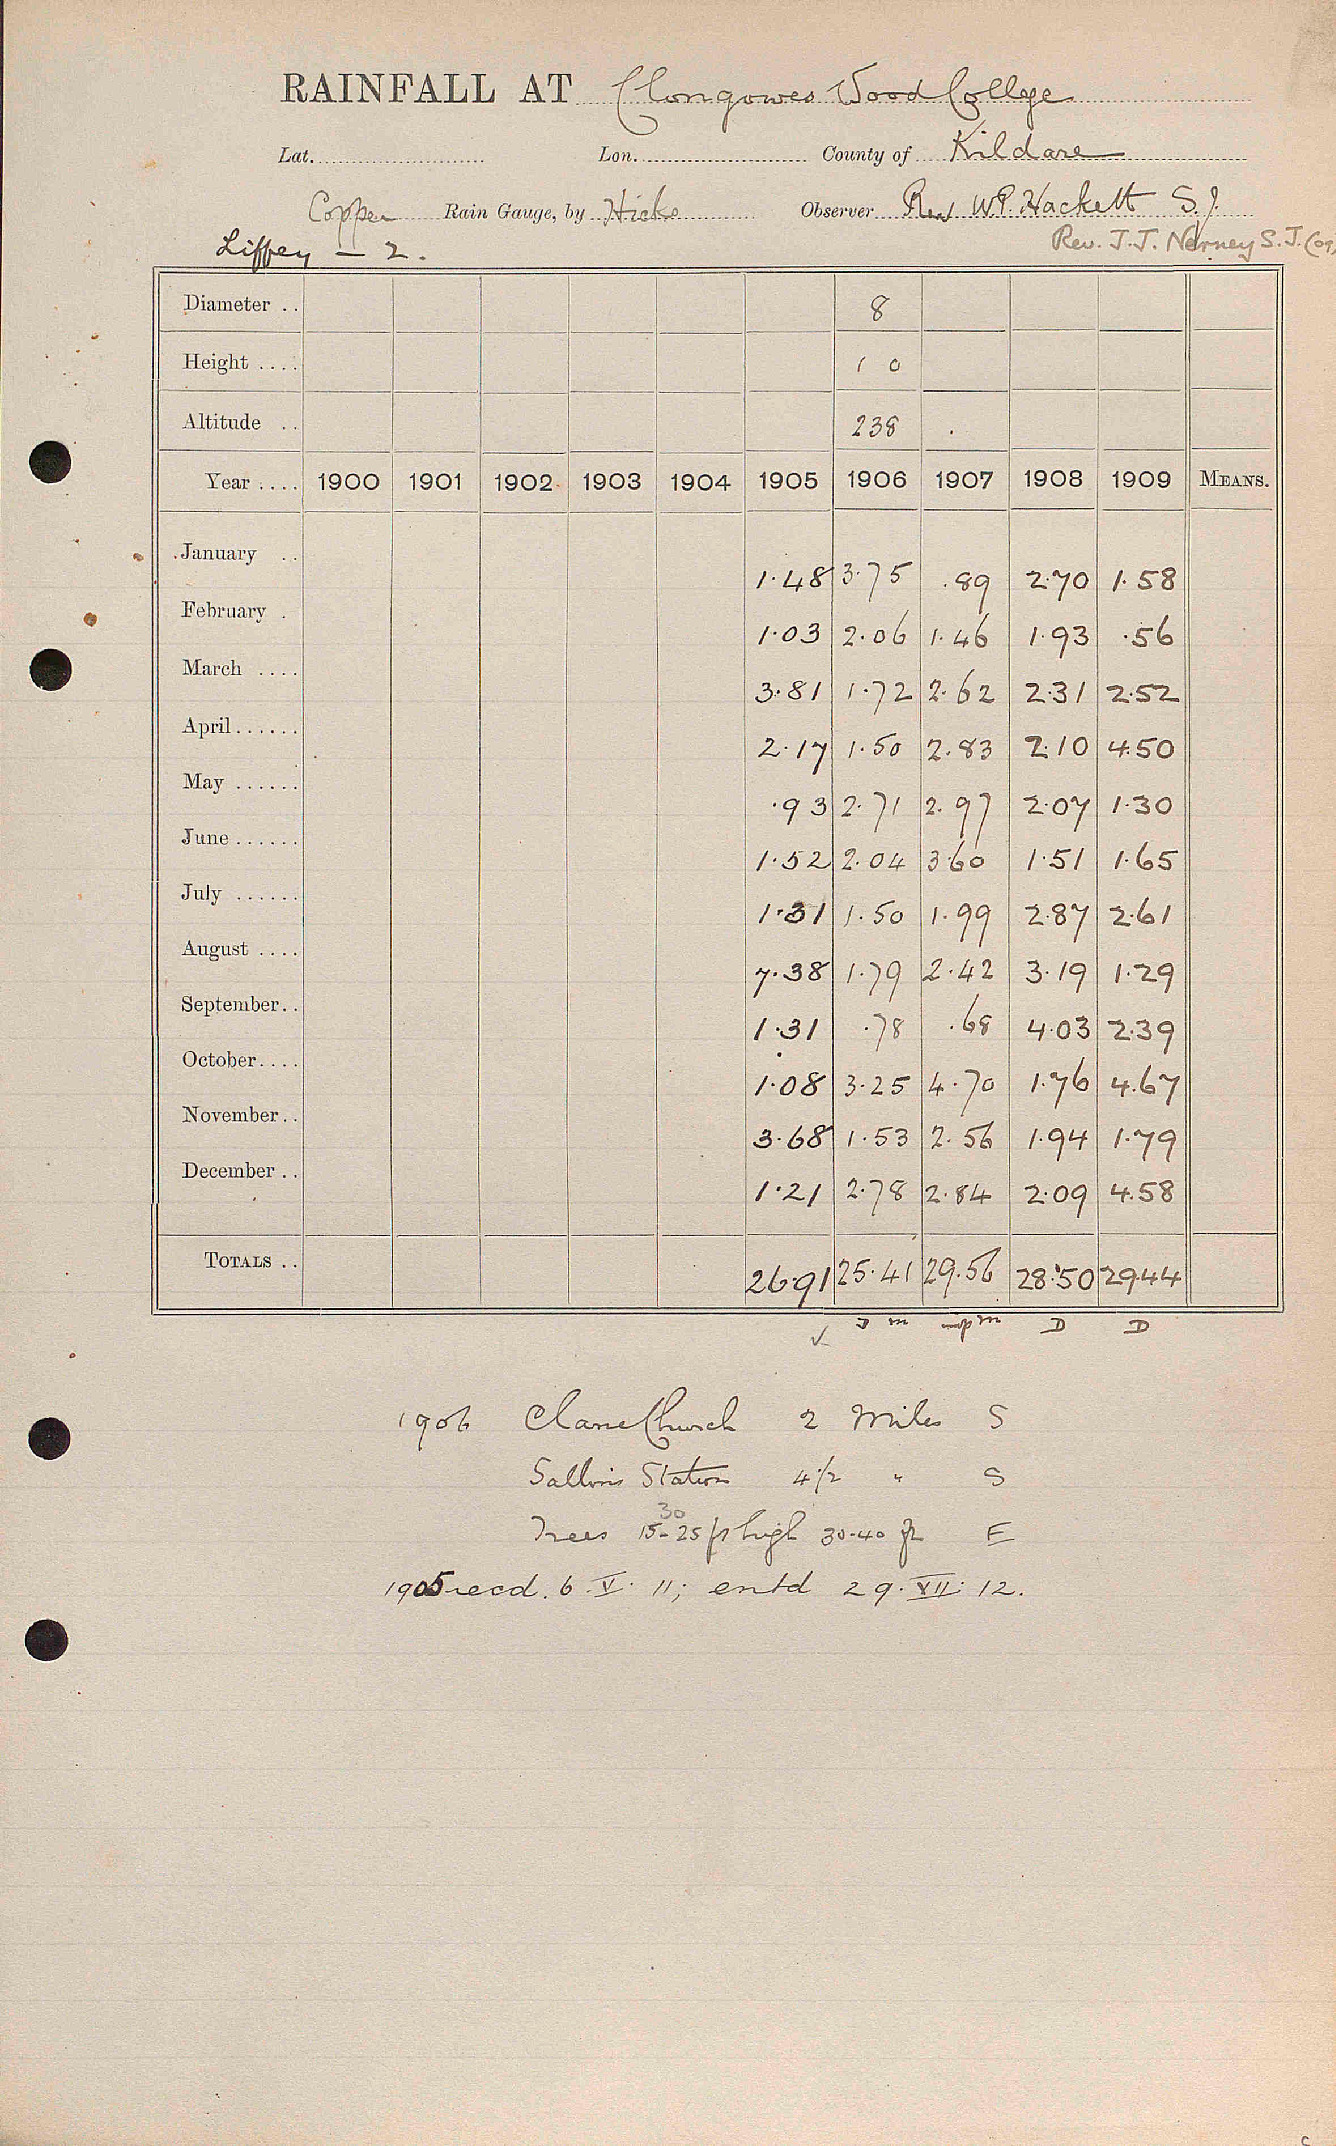 RAINFALL AT Clongowes Wood College
Lat. Lon. County of Kildare
Copper Rain Gauge, by Hicks Observer Rev WP Hackett S.J.
Liffey — 2. Rev. J.J. Nerney S.J. (09)
Diameter .. 8
Height .... 1 0
Altitude .. 238 .
Year .... 1900 1901 1902 1903 1904 1905 1906 1907 1908 1909 MEANS.
January .. 1.48 3.75 .89 2.70 1.58
February . 1.03 2.06 1.46 1.93 .56
March .... 3.81 1.72 2.62 2.31 2.52
April...... 2.17 1.50 2.83 2.10 4.50
May ...... .93 2.71 2.97 2.07 1.30
June ...... 1.52 2.04 3.60 1.51 1.65
July ...... 1.31 1.50 1.99 2.87 2.61
August .... 7.38 1.79 2.42 3.19 1.29
September.. 1.31 .78 .68 4.03 2.39
October.... 1.08 3.25 4.70 1.76 4.67
November.. 3.68 1.53 2.56 1.94 1.79
December .. 1.21 2.78 2.84 2.09 4.58
TOTALS .. 26.91 25.41 29.56 28.50 29.44
✓ D m pm D D
1906 Clane Church 2 Miles S
Sallins Station 4 1/2 " S
30
Trees 15-25 ft high 30-40 ft E
1905 recd. 6.V.11; entd 29.XII.12.